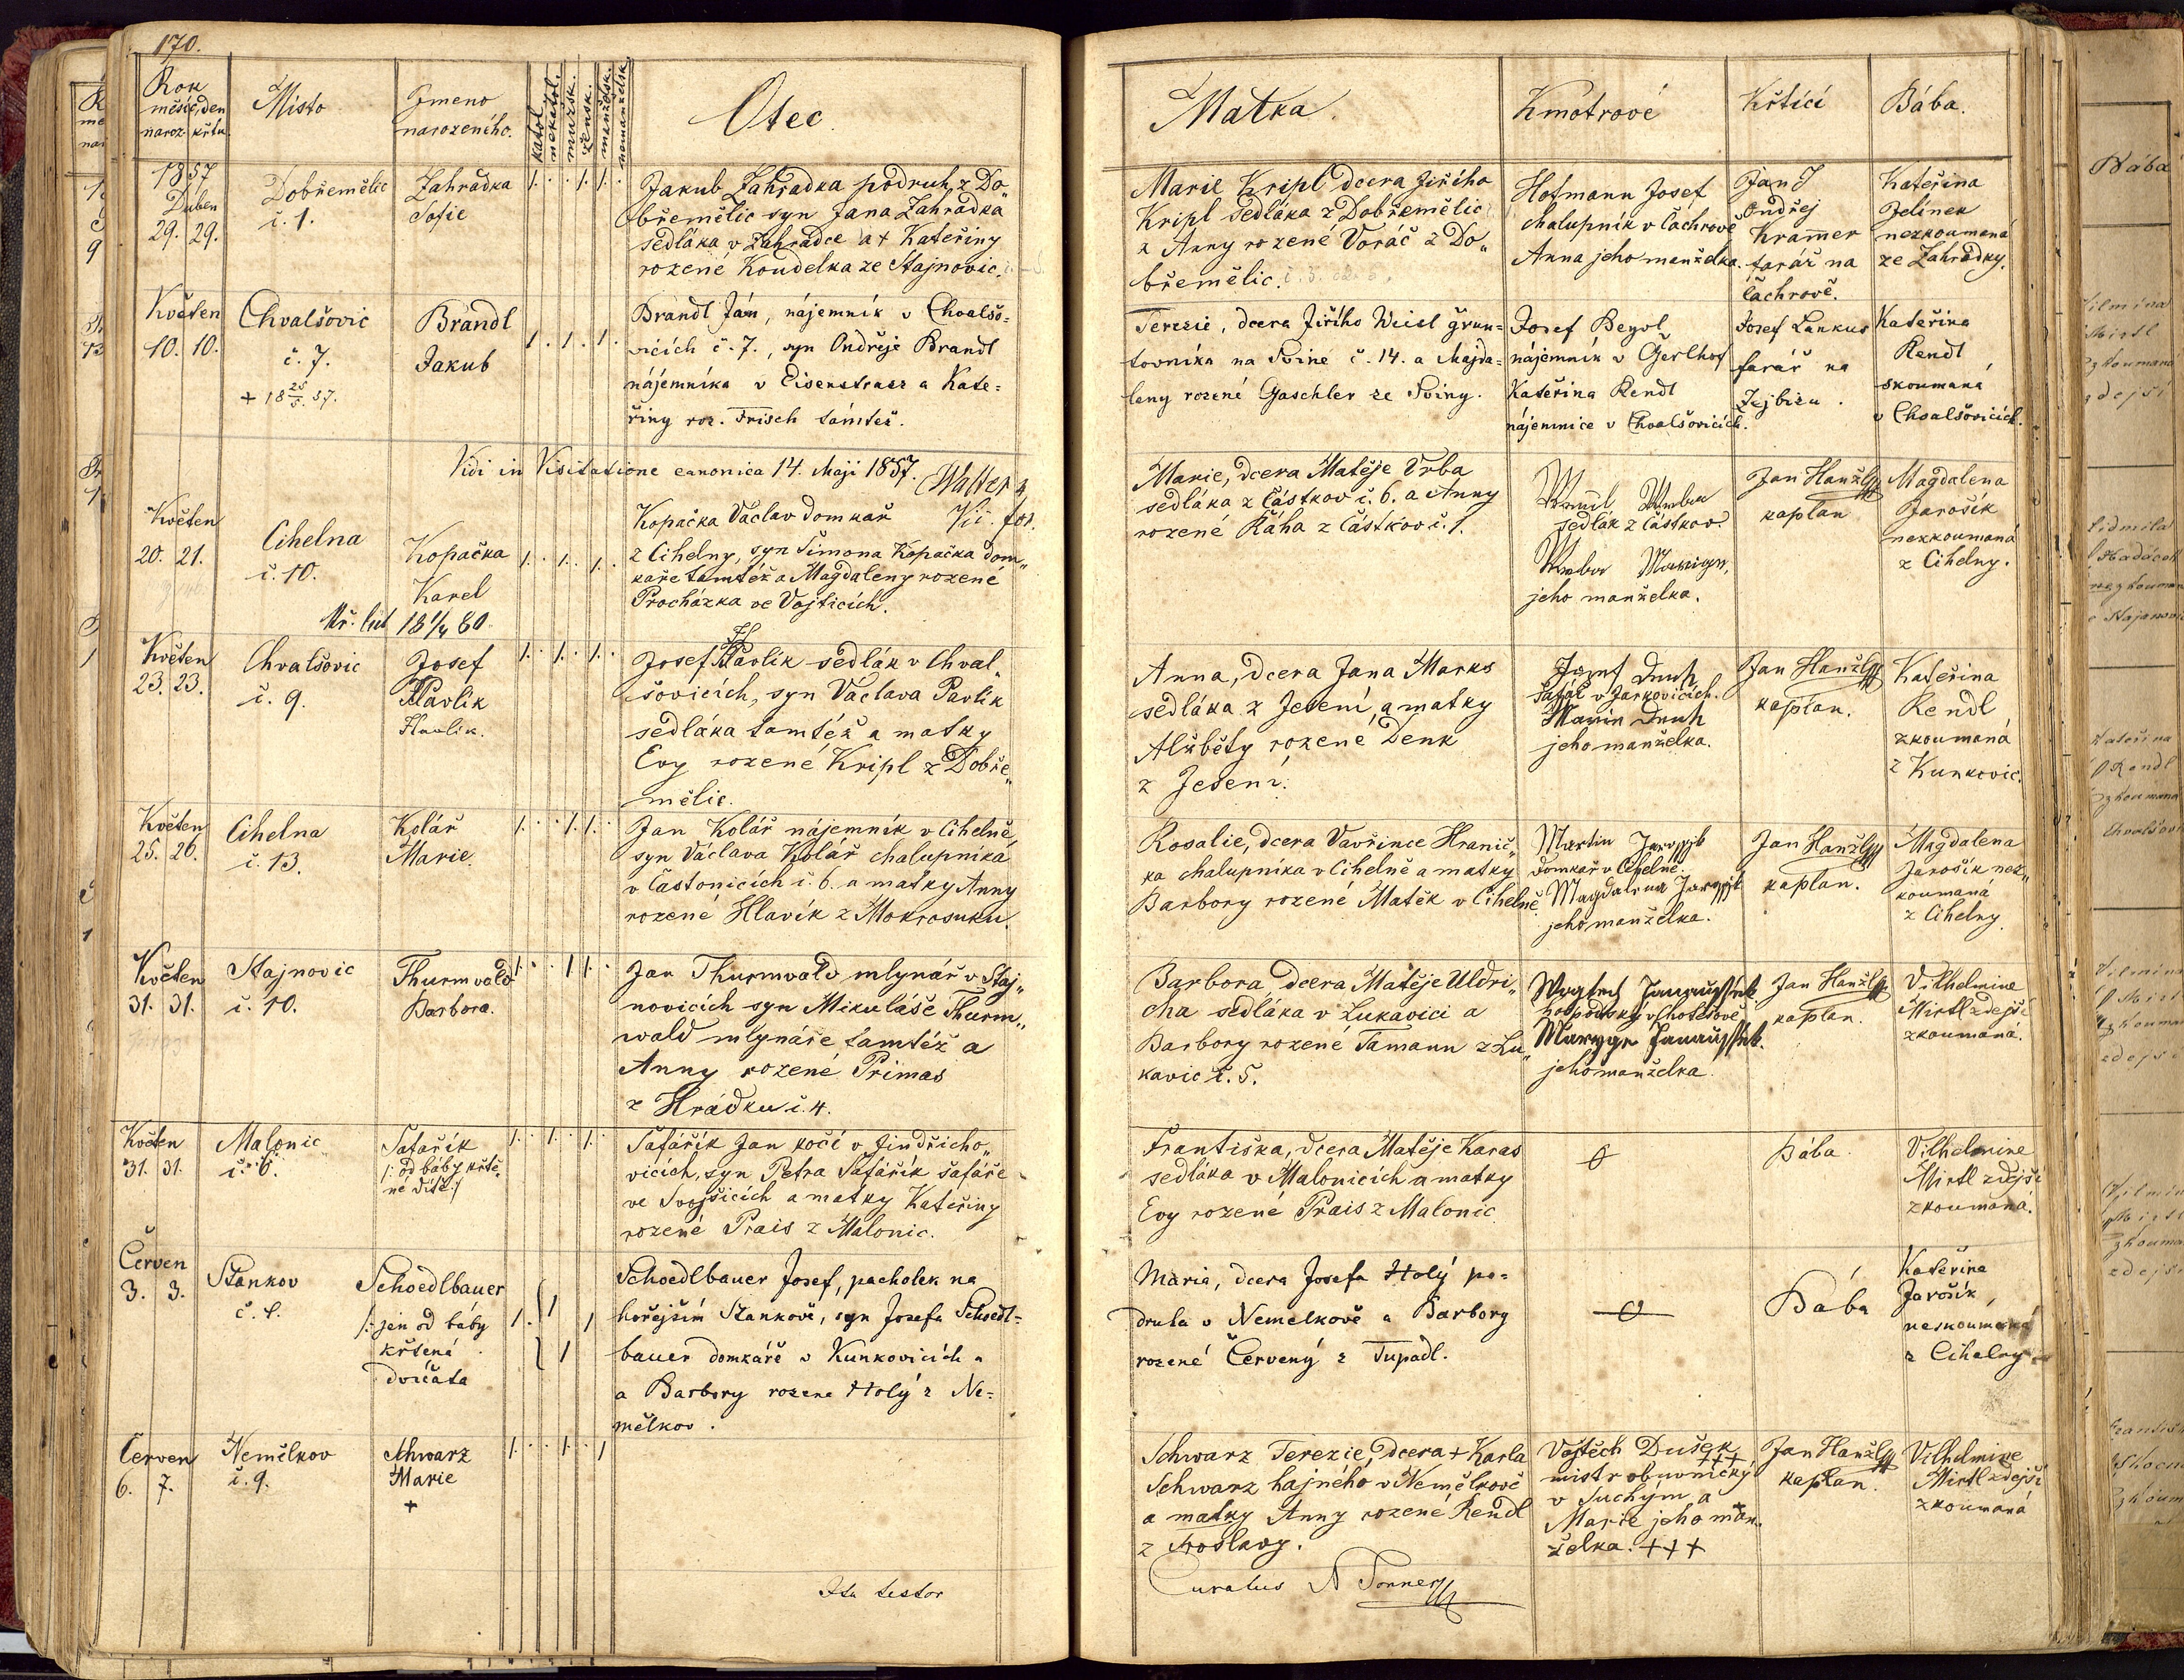 170.
Rok
měsíc, den
naroz. křtu
Místo
Jmeno
narozeného.
katol.
nekatol.
mužsk.
žensk.
manželsk.
nemanželsk.
Otec
Matka.
Kmotrové
Křtící
Bába.
1857
Duben
29. 29.
Dobřemělic
č. 1.
Zahrádka
Sofie
Jakub Zahradka podruh z Do„
břemělic syn Jana Zahradka
sedláka v Zahrádce a + Kateřiny
rozené Koudelka ze Stajnovic.
Marie Kripl dcera Jiřího
Kripl sedláka z Dobřemělic
z Anny rozené Voráč z Do„
břemělic.
Hofmann Josef
chalupník v Čachrově
Anna jeho manželka.
Jan
Ondřej
Kramer
farář na
Čachrově.
Kateřina
Jelínek
nezkoumaná
ze Zahrádky.
Květen
10. 10.
Chvalšovic
č. 7.
+ 18 25/5. 57.
Brandl
Jakub
Brandl Ján, nájemník v Chvalšo=
vicích č. 7., syn Ondřeje Brandl
nájemníka v Eisenstrasz a Kate=
řiny roz. Frisch tamtéž.
Terezie, dcera Jiřího Weisl grun=
tovníka na Svině č. 14. a Majda=
leny rozené Gaschler ze Sviny.
Josef Beyol
nájemník v Gerlhof
Kateřina Rendl
nájemnice v Chvalšovicích.
Josef Lankus
farář na
Zejbišu.
Kateřina
Rendl
skoumaná
v Chvalšovicích.
Vidi in Visitatione canonica 14. Maji 1857. Walter
Vic. for.
Květen
20. 21.
Cihelna
č. 10.
Kopačka
Karel
Kř. list 18 1/4 80
Kopačka Václav domkař
z Cihelny, syn Šimona Kopačka dom„
kaře tamtéž a Magdaleny rozené
Procházka ve Vojticích.
Marie, dcera Matěje Vrba
sedláka z Částkov č. 6. a Anny
rozené Káha z Částkov č. 1.
sedlák z Částkov.
jeho manželka.
Jan Hanžl
kaplan
Magdalena
Jarošík
nezkoumaná
z Cihelny.
Květen
23. 23.
Chvalšovic
č. 9.
Josef
Pavlík
Havlík.
H
Josef Pavlík sedlák v Chval„
šovicích, syn Václava Pavlík
sedláka tamtéž a matky
Evy rozené Kripl z Dobře„
mělic.
Anna, dcera Jana Marks
sedláka z Jesení a matky
Alžběty rozené Denk
z Jesení.
Josef Duch
šafář v Jarkovicích.
Marie Duch
jeho manželka.
Jan Hanžl
kaplan.
Kateřina
Rendl
zkoumaná
z Kunkovic.
Květen
25. 26.
Cihelna
č. 13.
Kolář
Marie
Jan Kolář nájemník v Cihelně
syn Václava Kolář chalupníka
v Častonicích č. 6. a matky Anny
rozené Hlavík z Mokrosuku.
Rosalie, dcera Vavřince Hranič„
ka chalupníka v Cihelně a matky
Barbory rozené Matěk v Cihelně
Martin
domkař v Cihelně.
Magdalena
jeho manželka.
Jan Hanžl
kaplan.
Magdalena
Jarošík nez„
koumaná
z Cihelny.
Květen
31. 31.
Stajnovic
č. 10.
Thurmwald
Barbora.
Jan Thurmwald mlynář v Staj„
novicích syn Mikuláše Thurm„
wald mlynáře tamtéž a
Anny rozené Primas
z Hrádku č. 4.
Barbora, dcera Matěje Uldri„
cha sedláka v Lukavici a
Barbory rozené Tamann z Lu„
kavic č. 5.
hospodský v Chotěšově
jeho manželka.
Jan Hanžl
kaplan.
Vilhelmine
Mirtl zdejší
zkoumaná.
Květen
31. 31.
Malonic
č. 6.
Šafařík
/: od báby křtě„
né dítě :/
Šafářík Jan kočí v Jindřicho„
vicích, syn Petra Šafářík šafáře
ve Svojšicích a matky Kateřiny
rozené Prais z Malonic.
Františka, dcera Matěje Karas
sedláka v Malonicích a matky
Evy rozené Prais z Malonic
Bába.
Vilhelmine
Mirtl zdejší
zkoumaná.
Červen
3. 3.
Stankov
Schoedlbauer
/:jen od báby
křtená
dvojčata
Schoedlbauer Josef, pacholek na
hořejším Stankově, syn Josefa Schoedl=
bauer domkáře v Kunkovicích a
a Barbory rozene Holý z Ne=
mělkov.
Maria, dcera Josefa Holý po=
druha v Nemelkově a Barbory
rozené Červený z Tupadl.
Bába
Kateřina
Jarošík,
neskoumaná
z Cihelny
Červen
6. 7.
Nemělkov
č. 9.
Schwarz
Marie
+
Schwarz Terezie, dcera + Karla
Schwarz hajného v Nemělkově
a matky Anny rozené Rendl
z Froslavy.
Vojtěch Dušek
+++
mistr obuvnický
v Suchým a
Marie jeho man„
želka. +++
Jan Hanžl
kaplan.
Vilhelmine
Mirtl zdejší
zkoumaná
Ita testor
Curatus A Tonner